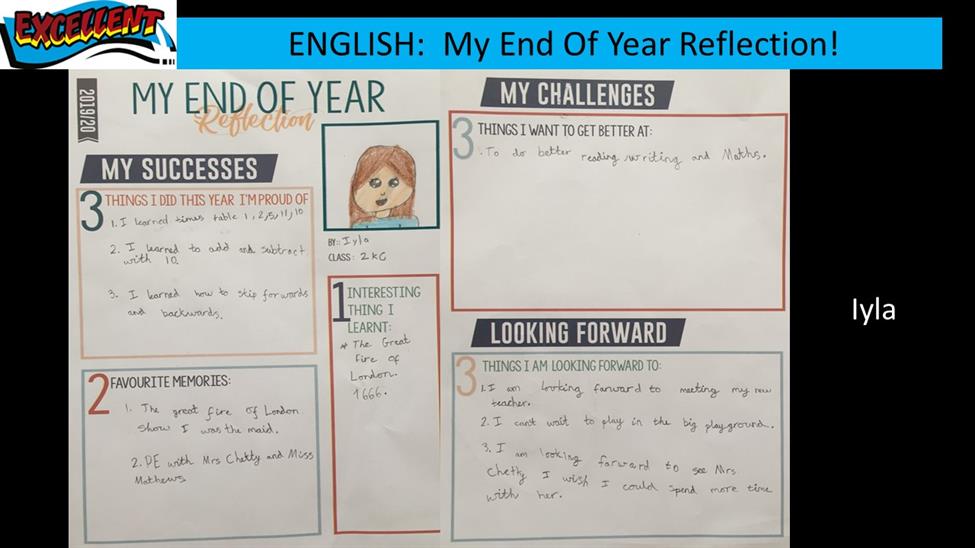 EXCELLENT
ENGLISH: My End Of Year Reflection!
2019/20
MY END OF YEAR
Reflection
MY SUCCESSES
3 THINGS I DID THIS YEAR I'M PROUD OF
1. I learned times table 1, 2, 5, 11, 10
2. I learned to add and subtract
with 10.
3. I learned how to skip forwards
and backwards.
BY: Iyla
CLASS: 2KC
2 FAVOURITE MEMORIES:
1. The great fire of London
show I was the maid.
2. PE with Mrs Chetty and Miss
Mathews
1 INTERESTING
THING I
LEARNT:
The Great
fire of
London.
1666.
MY CHALLENGES
3 THINGS I WANT TO GET BETTER AT:
. To do better reading, writing and Maths.
LOOKING FORWARD
3 THINGS I AM LOOKING FORWARD TO:
1. I am looking forward to meeting my new
teacher.
2. I cant wait to play in the big playground.
3. I am looking forward to see Mrs
Chetty I wish I could spend more time
with her.
Iyla